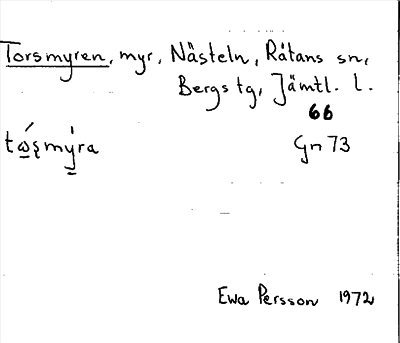 Torsmyren, myr, Nästeln, Råtans sn,
Bergs tg, Jämtl. l.
66
tώ̲ʂmý̲ra Gn 73
Ewa Persson 1972